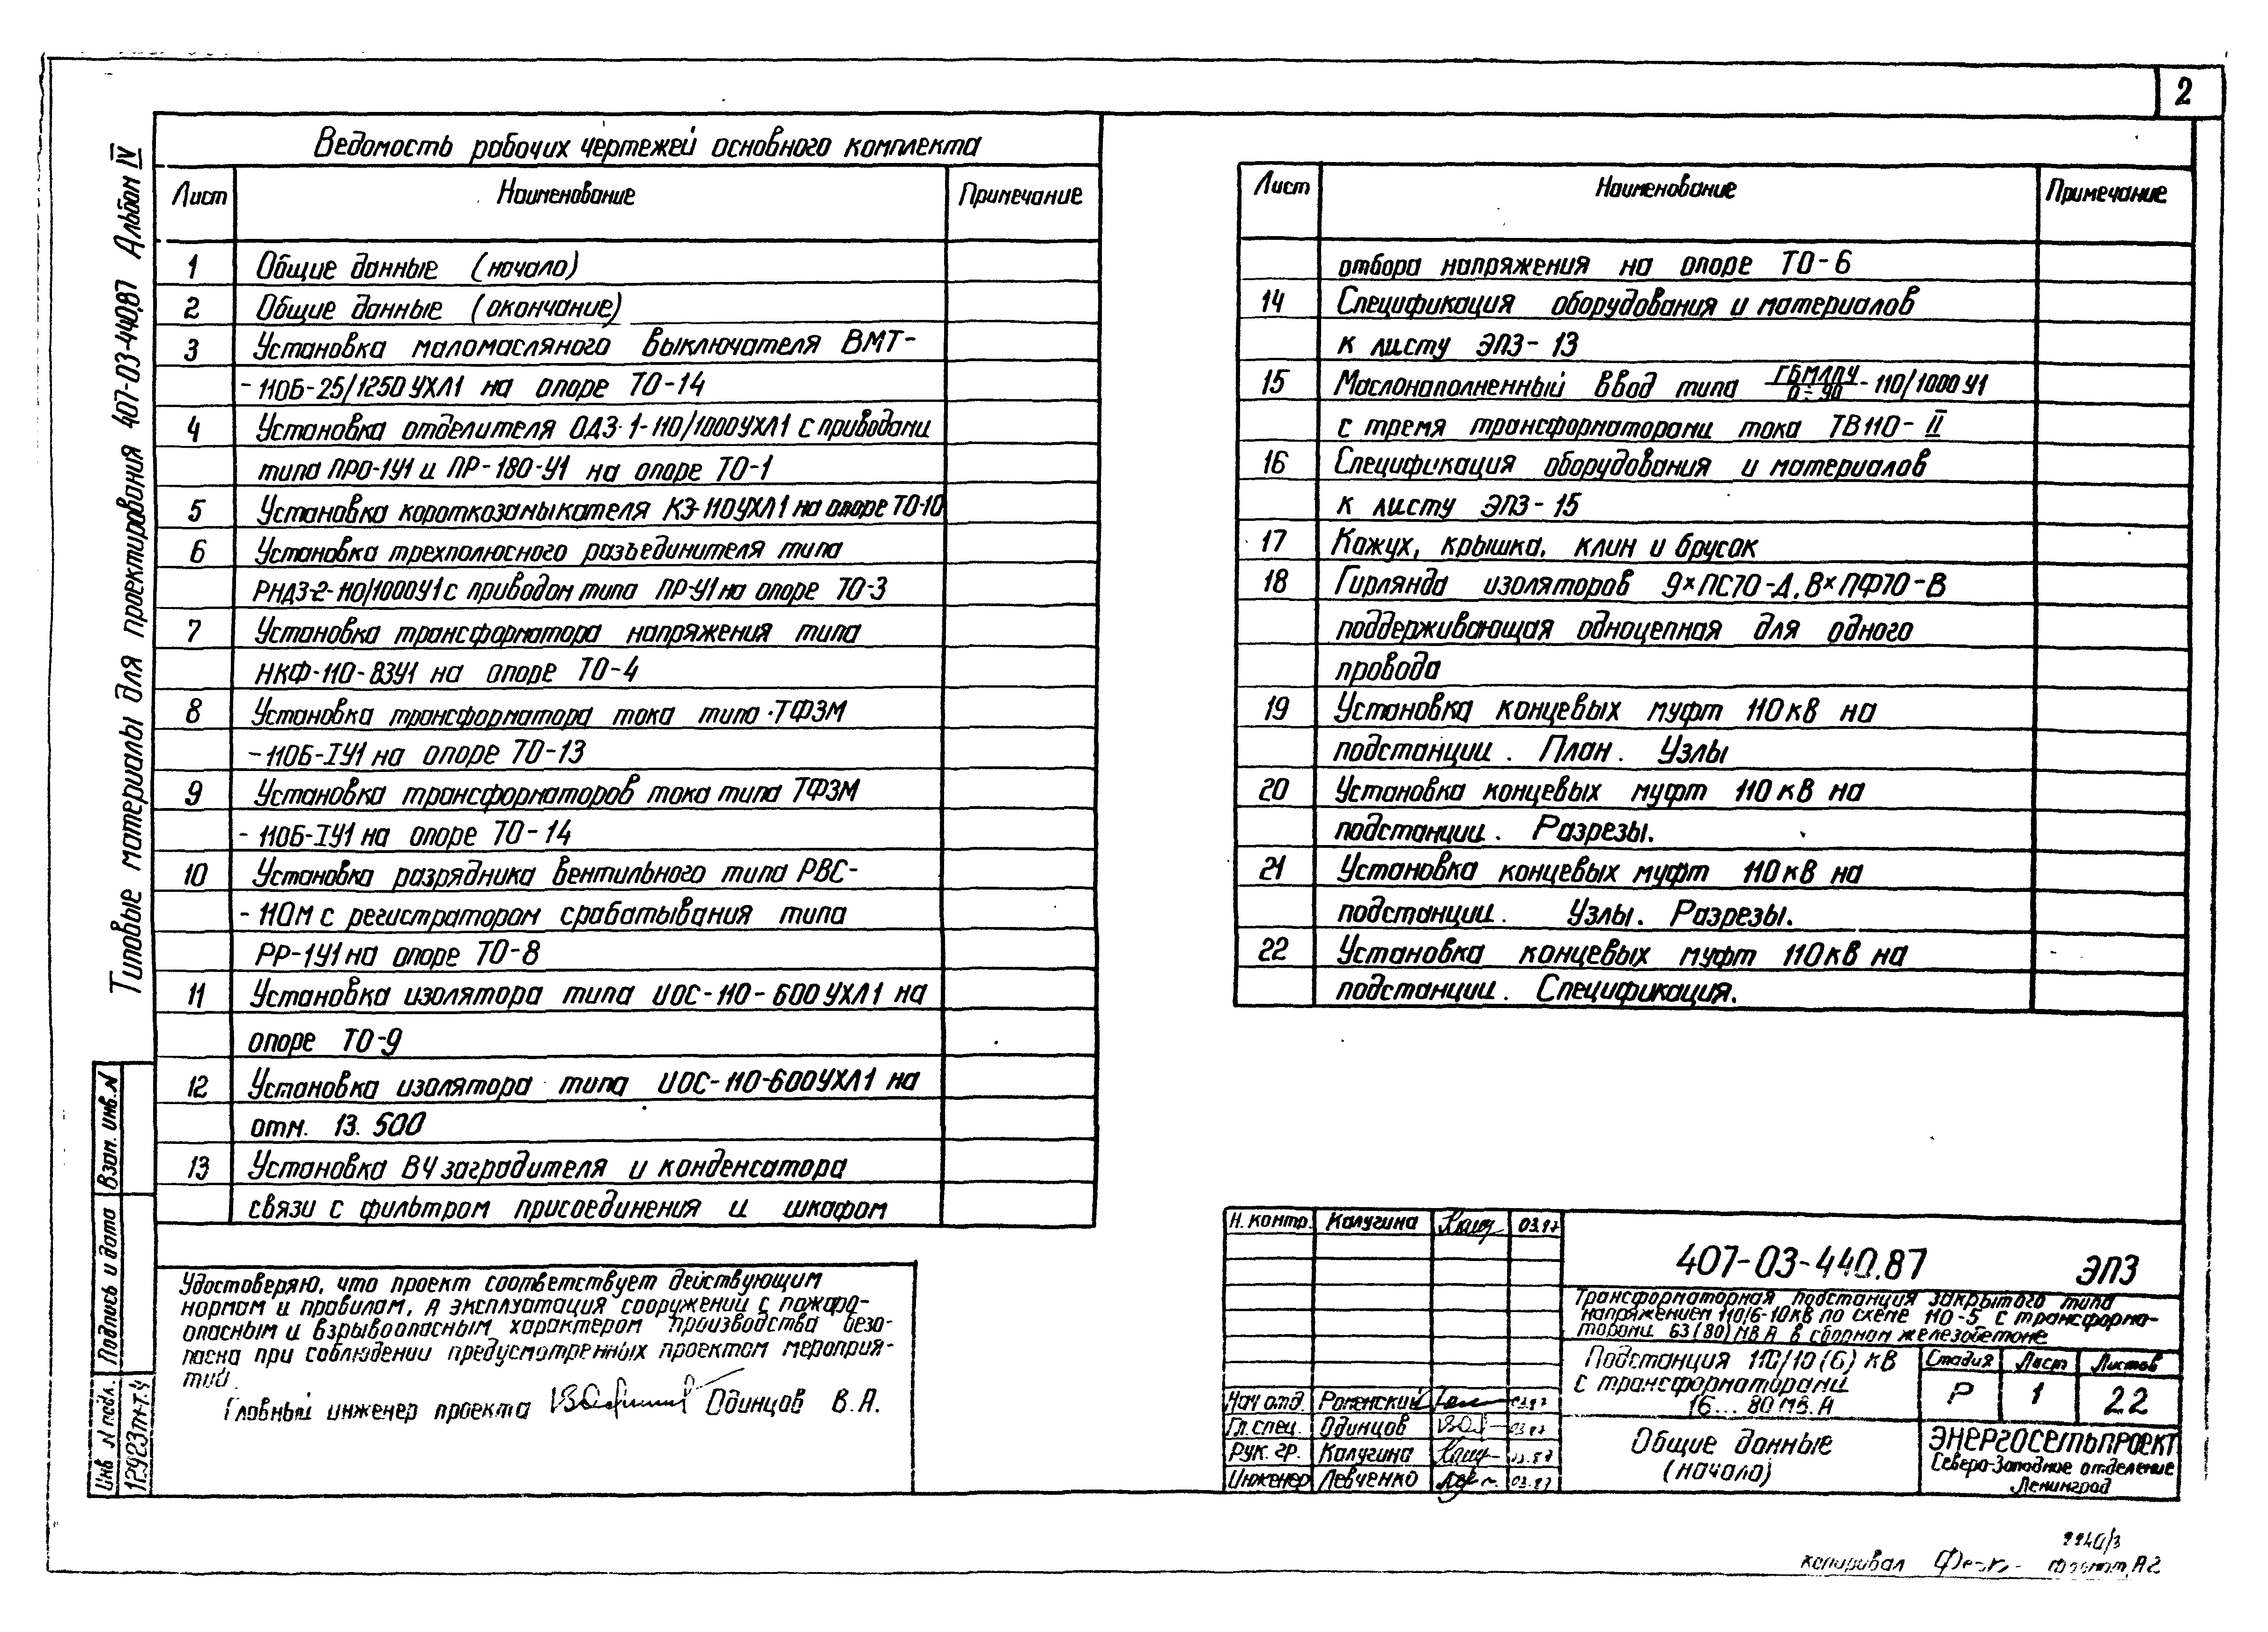 2
Типовые материалы для проектирования 407-03-440.87 Альбом IV
Ведомость рабочих чертежей основного комплекта
Лист Наименование Примечание
1 Общие данные (начало)
2 Общие данные (окончание)
3 Установка маломасляного выключателя ВМТ-
-110Б-25/1250 УХЛ1 на опоре ТО-14
4 Установка отделителя ОДЗ-1-110/1000УХЛ1 с приводами
типа ПРО-1У1 и ПР-180-У1 на опоре ТО-1
5 Установка короткозамыкателя КЗ-110УХЛ1 на опоре ТО-10
6 Установка трехполюсного разъединителя типа
РНДЗ-2-110/1000У1 с приводом типа ПР-У1 на опоре ТО-3
7 Установка трансформатора напряжения типа
НКФ-110-83У1 на опоре ТО-4
8 Установка трансформатора тока типа ТФЗМ
-110Б-IУ1 на опоре ТО-13
9 Установка трансформаторов тока типа ТФЗМ
-110Б-IУ1 на опоре ТО-14
10 Установка разрядника вентильного типа РВС-
-110М с регистратором срабатывания типа
РР-1У1 на опоре ТО-8
11 Установка изолятора типа ИОС-110-600 УХЛ1 на
опоре ТО-9
12 Установка изолятора типа ИОС-110-600УХЛ1 на
отм. 13.500
13 Установка ВЧ заградителя и конденсатора
связи с фильтром присоединения и шкафом
Лист Наименование Примечание
отбора напряжения на опоре ТО-6
14 Спецификация оборудования и материалов
к листу ЭП3-13
15 Маслонаполненный ввод типа ГБМЛПУ/0÷90-110/1000 У1
с тремя трансформаторами тока ТВ110-II
16 Спецификация оборудования и материалов
к листу ЭП3-15
17 Кожух, крышка, клин и брусок
18 Гирлянда изоляторов 9×ПС70-Д, 8×ПФ70-В
поддерживающая одноцепная для одного
провода
19 Установка концевых муфт 110 кВ на
подстанции. План. Узлы
20 Установка концевых муфт 110 кВ на
подстанции. Разрезы.
21 Установка концевых муфт 110 кВ на
подстанции. Узлы. Разрезы.
22 Установка концевых муфт 110 кВ на
подстанции. Спецификация.
Взам. инв. N
Подпись и дата
Инв N подл.
12923тм-т.4
Удостоверяю, что проект соответствует действующим
нормам и правилам, а эксплуатация сооружений с пожаро-
опасным и взрывоопасным характером производства безо-
пасна при соблюдении предусмотренных проектом мероприя-
тий.
Главный инженер проекта Одинцов В.А.
Н. контр. Калугина 03.87
Нач отд. Роменский 03.87
Гл. спец. Одинцов 03.87
Рук. гр. Калугина 03.87
Инженер Левченко 03.87
407-03-440.87 ЭП3
Трансформаторная подстанция закрытого типа
напряжением 110/6-10кВ по схеме 110-5 с трансформа-
торами 63(80)МВ А в сборном железобетоне
Подстанция 110/10(6) кВ
с трансформаторами
16...80 МВ.А
Стадия Лист Листов
Р 1 22
Общие данные
(начало)
ЭНЕРГОСЕТЬПРОЕКТ
Северо-Западное отделение
Ленинград
Копировал Формат А2